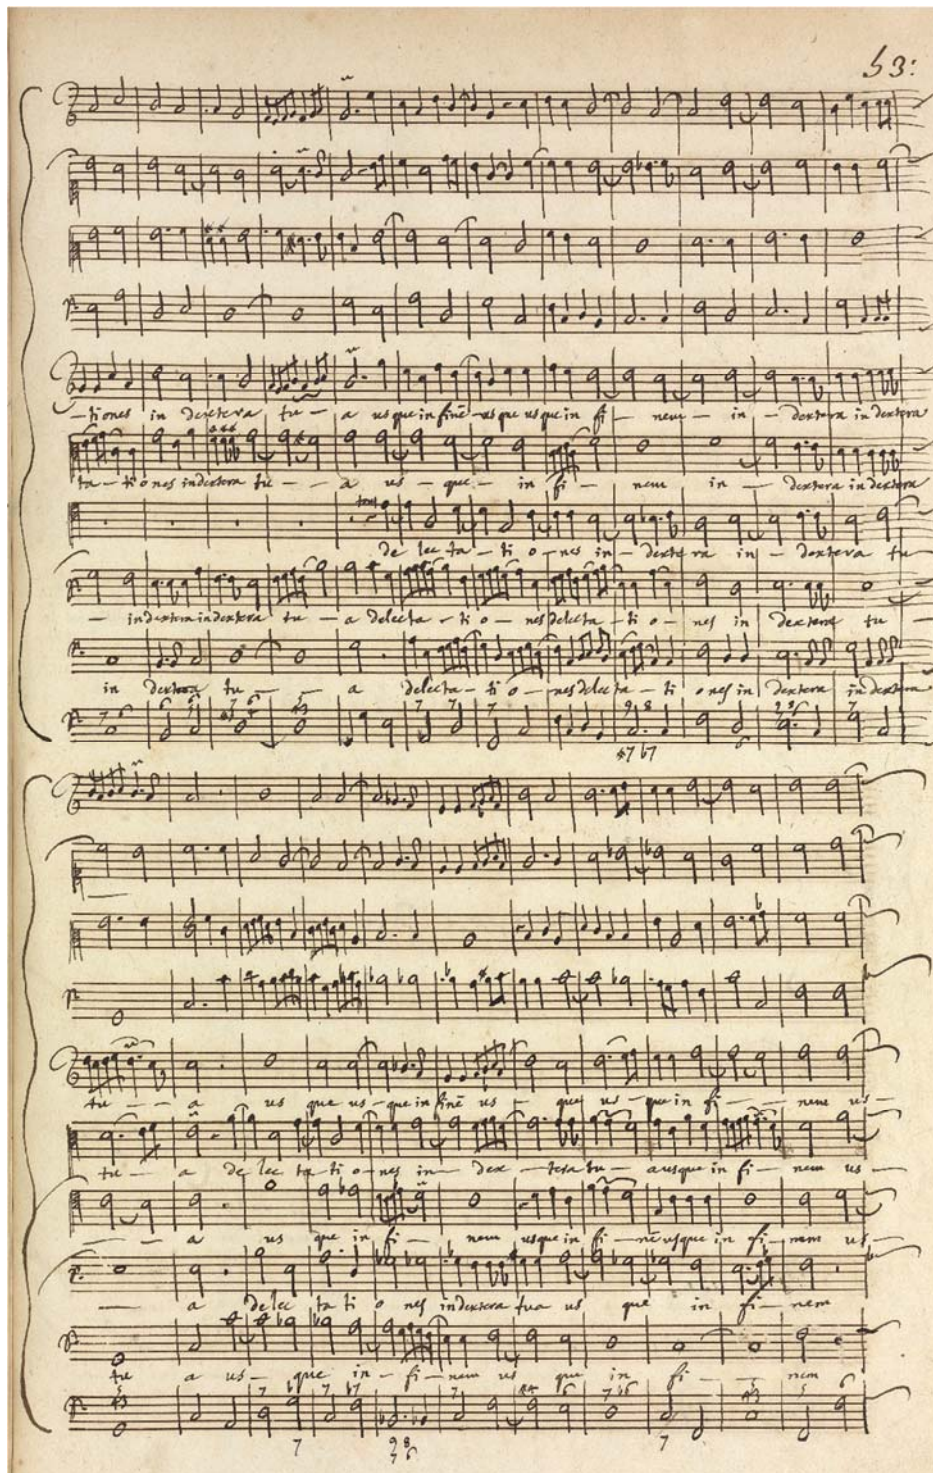 53:
-tiones in dextera tu - a usque in finē - usque usque in fi - nem - in - dextera in dextera
ta - tiones in dextera tu - - a us - que - in fi - nem in - dextera in dextera
de lec ta - ti o - nes in - dextera in - dextera tu
- in dextera in dextera tu - a delecta - ti o - nes delecta - ti o - nes in dextera tu -
in dextera tu - - a delecta - ti o - nes delecta - ti ones in dextera in dextera
7 6
9 8
#7 b7
tu - - a us que us - que in finē us - que us - que in fi - - nem us -
tu - a de lec ta - ti o - nes in - dex - tera tu - a usque in fi - nem us -
- - a us que in fi - nem usque in fi - nē usque in fi - nem us -
- a delec ta ti o nes in dextera tua us que in fi - nem
tu a us - que in - fi - nem us que in fi - - nem
7
9 8
7 6
7